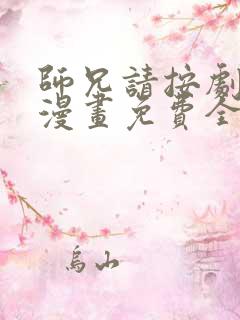 師兄請按劇
漫畫免費全
烏山